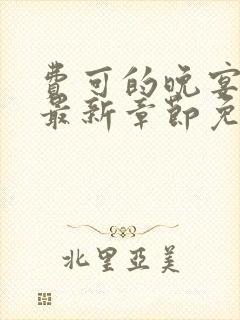 费可的晚宴
最新章节免
北里亞美